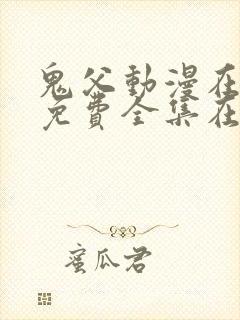 鬼父動漫在
免費全集在
蜜瓜君